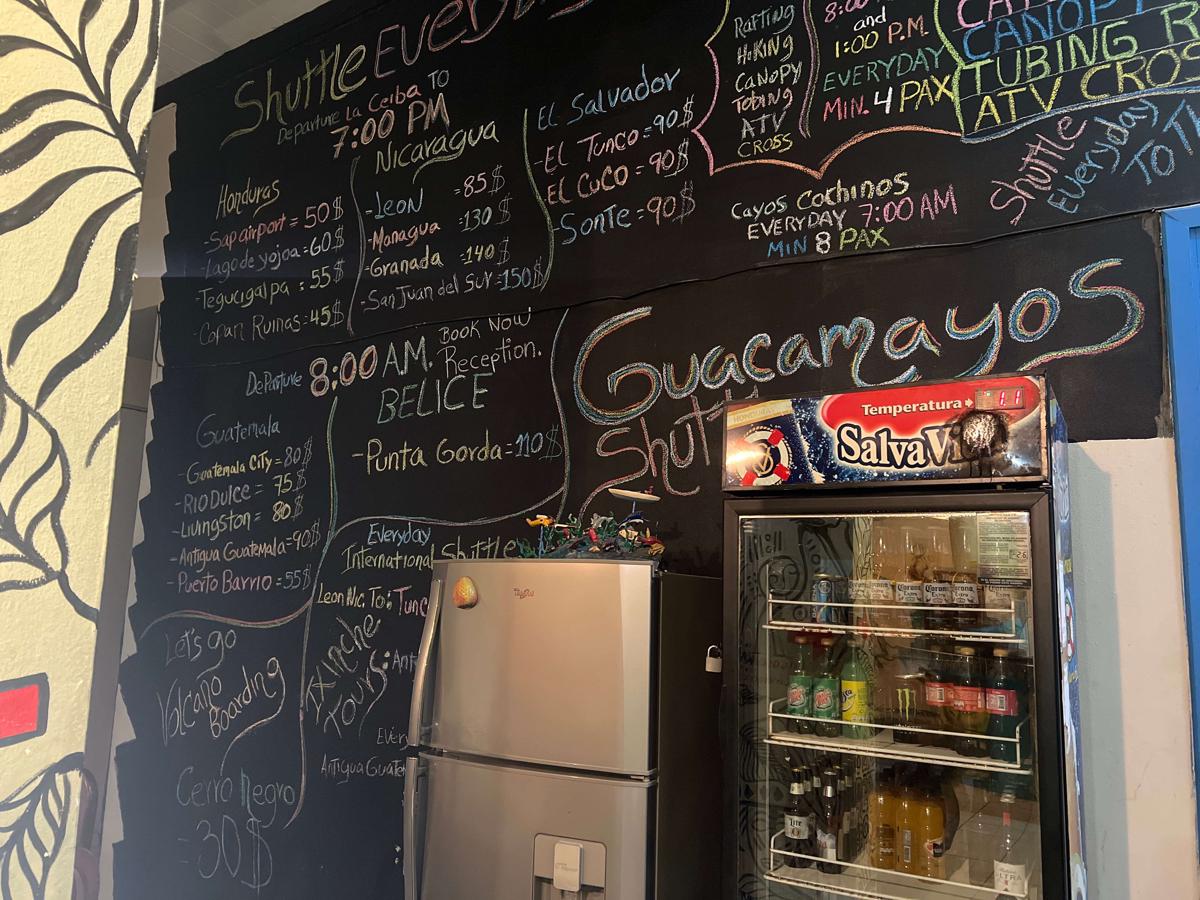 Shuttle EVERY
Departure La Ceiba TO
7:00 PM
Honduras
-Sap airport = 50$
-Lago de yojoa = 60$
-Tegucigalpa : 55$
-Copan Ruinas = 45$
Nicaragua
-Leon = 85$
-Managua = 130$
-Granada = 140$
-San Juan del Sur = 150$
El Salvador
-El Tunco = 90$
El Cuco = 90$
-Sonte = 90$
RAFTING
HIKING
CANOPY
TUBING
ATV
CROSS
8:00
and
1:00 P.M.
EVERYDAY
MIN. 4 PAX
CANOPY
TUBING R
ATV CROS
Cayos Cochinos
EVERYDAY 7:00 AM
MIN 8 PAX
Shuttle
Everyday
TO
Departure 8:00 AM.
Book Now
Reception.
BELICE
-Punta Gorda = 110$
Guatemala
-Guatemala City = 80$
-RIO DULCE = 75$
-Livingston = 80$
-Antigua Guatemala = 90$
-Puerto Barrio = 55$
Guacamayos
Shutt
Everyday
International Shuttle
Leon Nic. To: Tunc
IXINCHE
TOURS: Ant
Every
Antigua Guate
Let's go
Volcano
Boarding
Cerro Negro
= 30$
Temperatura
SalvaVi
Corona
Extra
Corona
Extra
Corona
Extra
Lite
ULTRA